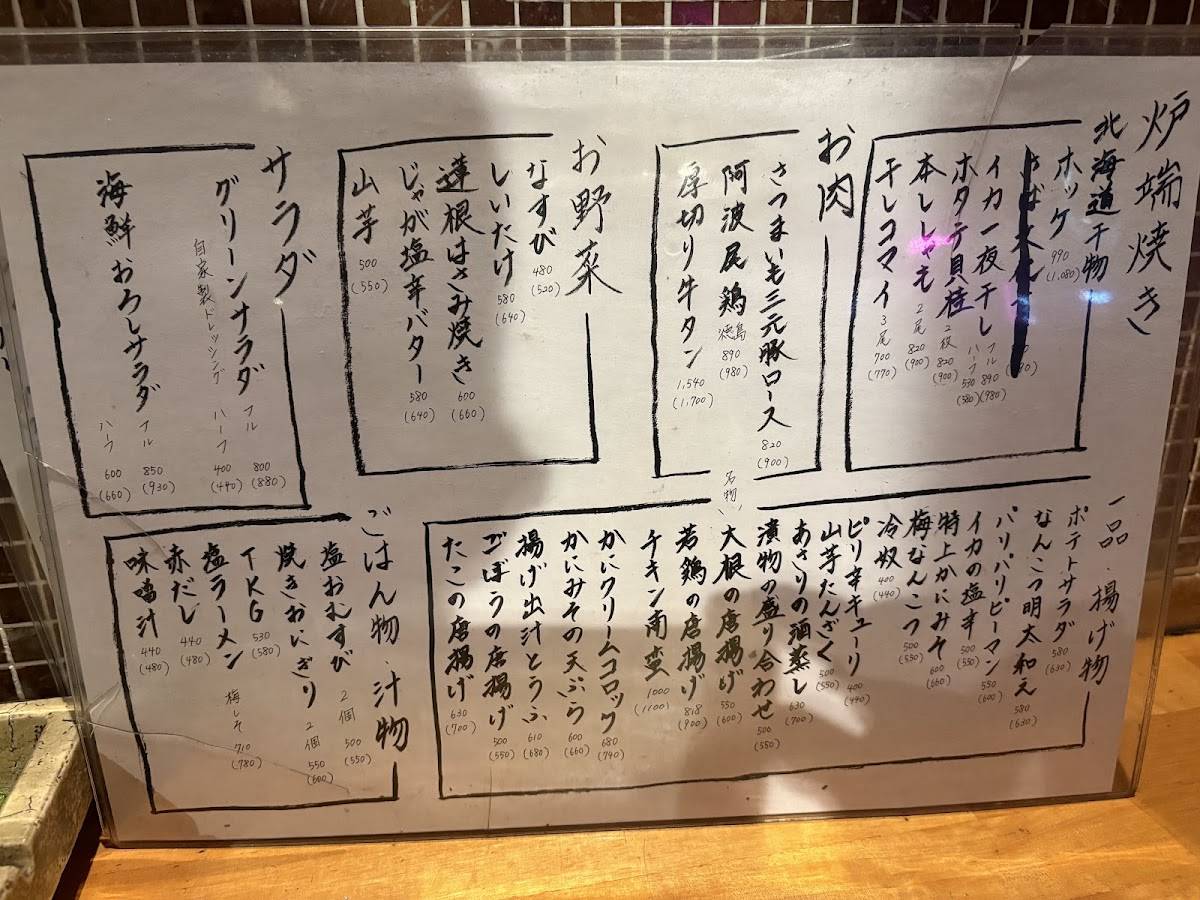 炉端焼き
北海道干物
ホッケ 990 (1,080)
イカ一夜干し フル 890 (980) ハーフ 530 (580)
ホタテ貝柱 2枚 820 (900)
本ししゃも 2尾 820 (900)
干しコマイ 3尾 700 (770)
お肉
さつまいも三元豚ロース 820 (900)
阿波尾鶏 徳島 890 (980)
厚切り牛タン 1,540 (1,700)
お野菜
なすび 480 (520)
しいたけ 580 (640)
蓮根はさみ焼き 600 (660)
じゃが塩辛バター 580 (640)
山芋 500 (550)
サラダ
グリーンサラダ フル 800 (880)
自家製ドレッシング ハーフ 400 (440)
海鮮おろしサラダ フル 850 (930)
ハーフ 600 (660)
一品・揚げ物
ポテトサラダ 580 (630)
なんこつ明太和え 580 (630)
パリパリピーマン 550 (600)
イカの塩辛 500 (550)
特上かにみそ 600 (660)
梅なんこつ 500 (550)
冷奴 400 (440)
ピリ辛キューリ 400 (440)
山芋たんざく 500 (550)
あさりの酒蒸し 630 (700)
漬物の盛り合わせ 500 (550)
名物
大根の唐揚げ 550 (600)
若鶏の唐揚げ 818 (900)
チキン南蛮 1000 (1100)
かにクリームコロッケ 680 (740)
かにみその天ぷら 600 (660)
揚げ出汁とうふ 610 (680)
ごぼうの唐揚げ 500 (550)
たこの唐揚げ 630 (700)
ごはん物・汁物
塩おむすび 2個 500 (550)
焼きおにぎり 2個 550 (600)
TKG 530 (580)
塩ラーメン 梅しそ 710 (780)
赤だし 440 (480)
味噌汁 440 (480)